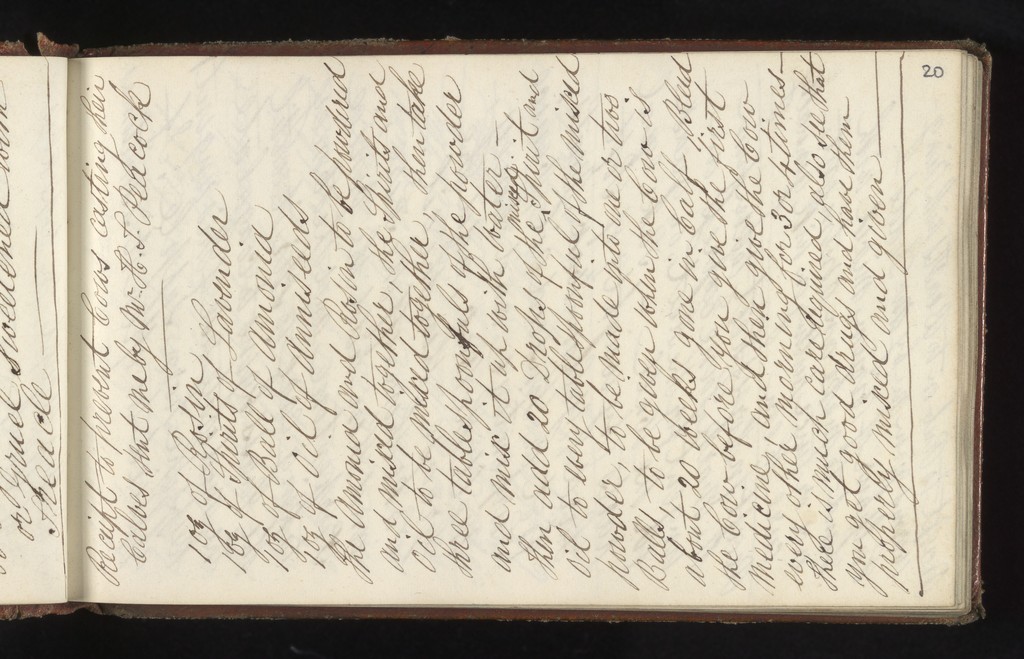 or Gruel sweetened with
Treacle
20
Reciept to prevent Cows casting their
Calbes sent me by Mr. C. S. Peacock
1 oz of Rosin
1 oz of Spirits of Lavender
1 oz of Ball of Amonia
1 oz of Oil of Anniseeds
The Amonia and Rosin to be powdered
and mixed together, the Spirits and
oil to be mixed together, then take
three tablespoonfuls of the powder
and mix it up with water
then add 20 Drops of the mixed Spirit and
oil to every tablespoonful of the mixed
powder, to be made into one or two
Balls, to be given when the Cow is
about 20 weeks gone in calf, Bleed
the Cow before you give the first
medicine, and then give the Cow
every other morning for 3 or 4 times
there is much care required also see that
you get good drugs and have them
properly mixed and given